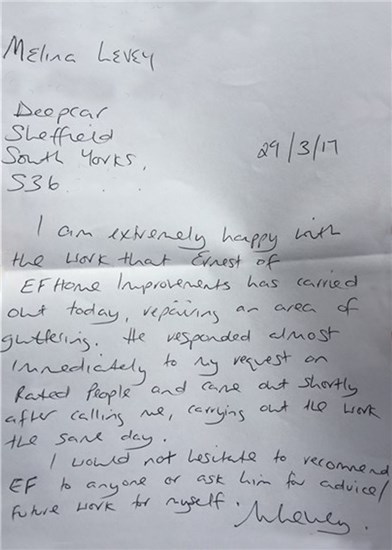 Melina Levey
Deepcar
Sheffield
South Yorks,
S36
29/3/17
I am extremely happy with
the work that Ernest of
EF Home Improvements has carried
out today, repairing an area of
guttering. He responded almost
immediately to my request on
Rated People and came out shortly
after calling me, carrying out the work
the same day.
I would not hesitate to recommend
EF to anyone or ask him for advice/
future work for myself.